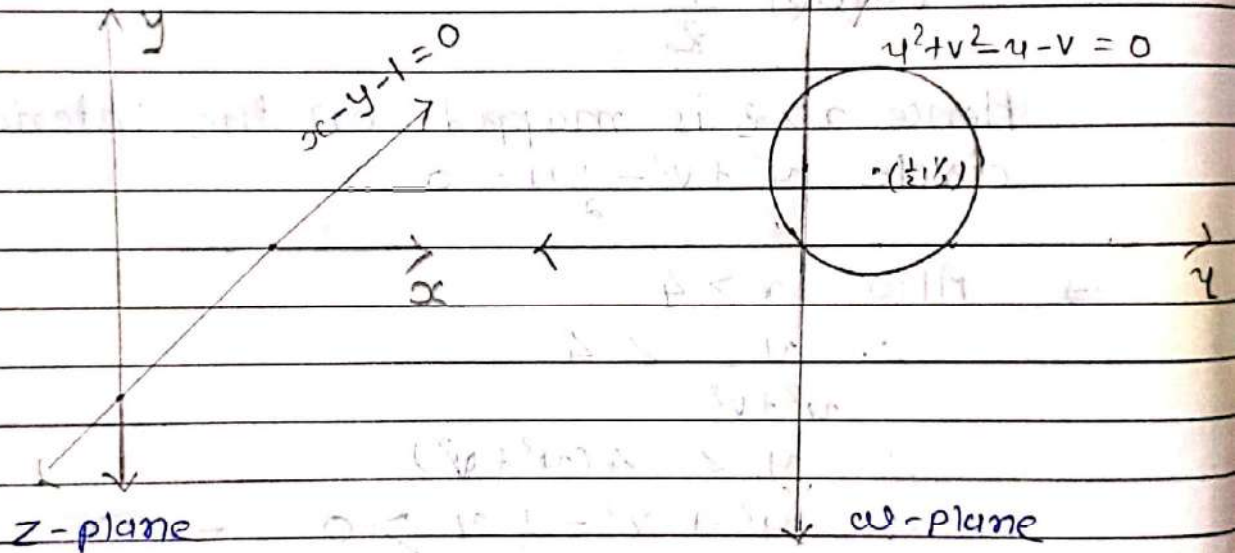 y
x-y-1=0
u²+v²-u-v = 0
(½,½)
x
u
z-plane
w-plane